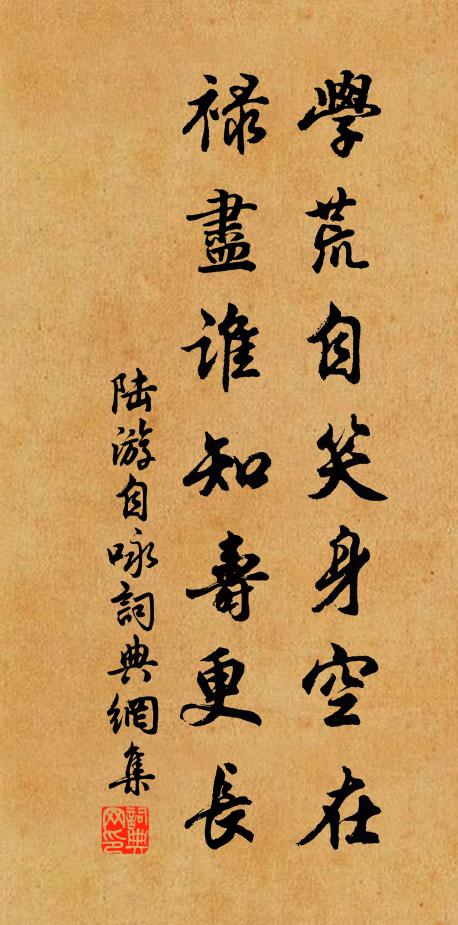 學荒自笑身空在
禄盡誰知壽更長
陆游自咏詞典網集
詞典网印